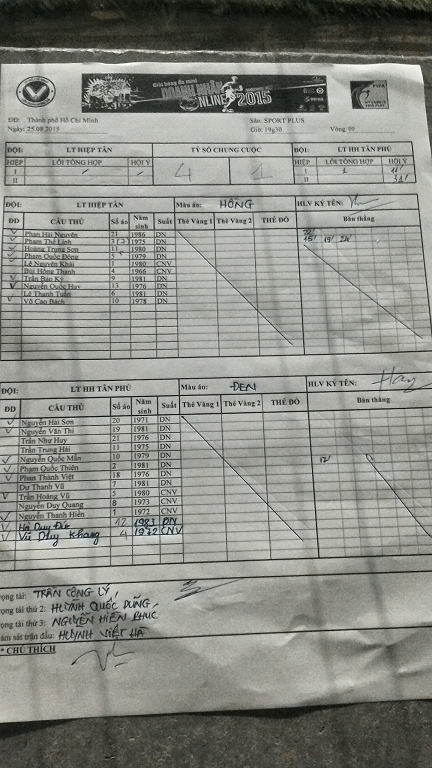 Giải bóng đá mini
DOANH NHÂN
ONLINE 2015
FIFA
ĐĐ: Thành phố Hồ Chí Minh Sân: SPORT PLUS
Ngày: 25.08.2015 Giờ: 19g30 Vòng: 09
ĐỘI: LT HIỆP TÂN TỶ SỐ CHUNG CUỘC ĐỘI: LT HH TÂN PHÚ
HIỆP LỖI TỔNG HỢP HỘI Ý 4 1 HIỆP LỖI TỔNG HỢP HỘI Ý
I I 1
II II
ĐỘI: LT HIỆP TÂN Màu áo: HỒNG HLV KÝ TÊN:
ĐD CẦU THỦ Số áo Năm sinh Suất Thẻ Vàng 1 Thẻ Vàng 2 THẺ ĐỎ Bàn thắng
Phan Hải Nguyên 21 1986 DN
Phạm Thế Linh 3 1975 DN 15' 19' 24'
Hoàng Trung Sơn 11 1980 DN
Phạm Quốc Đông 5 1979 DN
Lê Nguyên Khải 1 1980 CNV
Bùi Hồng Thanh 4 1966 CNV
Trần Bảo Kỳ 9 1981 DN
Nguyễn Quốc Huy 13 1976 DN
Lê Thanh Tuấn 6 1981 DN
Võ Cao Bách 10 1978 DN
ĐỘI: LT HH TÂN PHÚ Màu áo: ĐEN HLV KÝ TÊN:
ĐD CẦU THỦ Số áo Năm sinh Suất Thẻ Vàng 1 Thẻ Vàng 2 THẺ ĐỎ Bàn thắng
Nguyễn Hải Sơn 20 1971 DN
Nguyễn Văn Thi 19 1981 DN
Trần Như Huy 21 1976 DN
Trần Trung Hải 11 1975 DN
Nguyễn Quốc Mẫn 10 1979 DN
Phạm Quốc Thiên 2 1981 DN
Phan Thành Việt 18 1976 DN
Dư Thanh Vũ 7 1981 DN
Trần Hoàng Vũ 5 1980 CNV
Nguyễn Duy Quang 8 1973 CNV
Nguyễn Thanh Hiền 1 1972 CNV
Hà Duy Đức 12 1983 DN
Vũ Duy Khang 4 1972 CNV
ọng tài: TRẦN CÔNG LÝ,
ọng tài thứ 2: HUỲNH QUỐC DŨNG,
ọng tài thứ 3: NGUYỄN HIỀN PHÚC
ám sát trận đấu: HUỲNH VIỆT HÀ
* CHÚ THÍCH